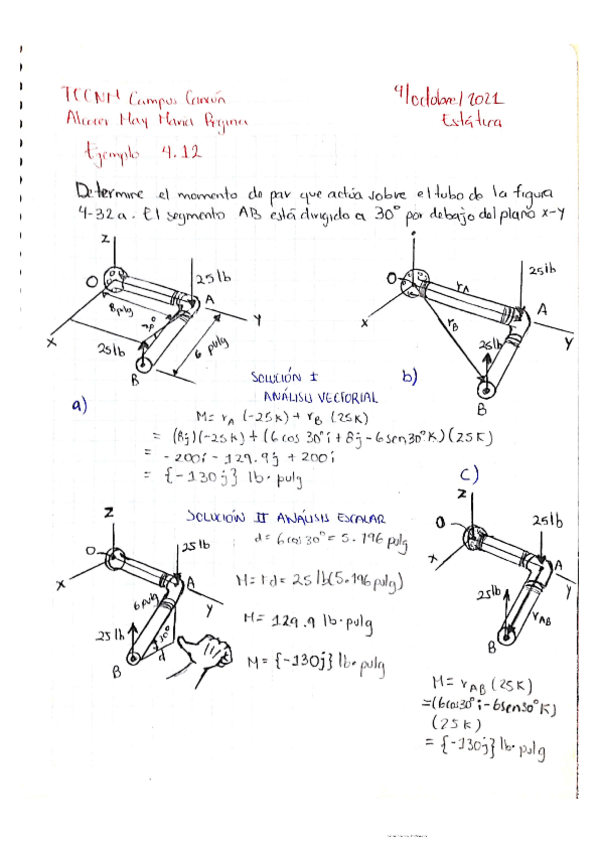 TECNM Campus Cancún
4/octubre/2021
Estática
Ejemplo 4.12
Determine el momento de par que actúa sobre el tubo de la figura
4-32a. El segmento AB está dirigido a 30° por debajo del plano x-y
Z
O
25 lb
A
8 pulg
Y
X
30°
25 lb
6 pulg
B
a)
O
rA
25 lb
A
X
rB
25 lb
Y
B
b)
SOLUCIÓN I
ANÁLISIS VECTORIAL
M= rA (-25K) + rB (25K)
= (8j)(-25K) + (6 cos 30°i + 8j - 6sen30°K)(25K)
= -200i - 129.9j + 200i
= {-130j} lb·pulg
SOLUCIÓN II ANÁLISIS ESCALAR
d= 6cos30° = 5.196 pulg
M= Fd= 25 lb(5.196 pulg)
M= 129.9 lb·pulg
M= {-130j} lb·pulg
Z
O
25 lb
A
X
6 pulg
Y
25 lb
30°
d
B
c)
Z
O
25 lb
X
A
25 lb
Y
rAB
B
M= rAB (25K)
=(6cos30°i-6sen30°K)
(25K)
= {-130j} lb·pulg